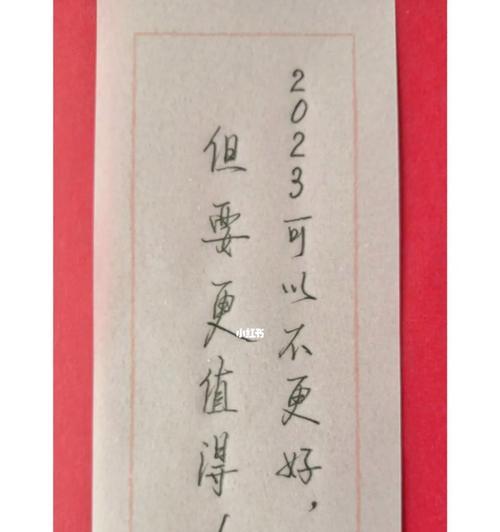 2023可以不更好，
但要更值得
小红书